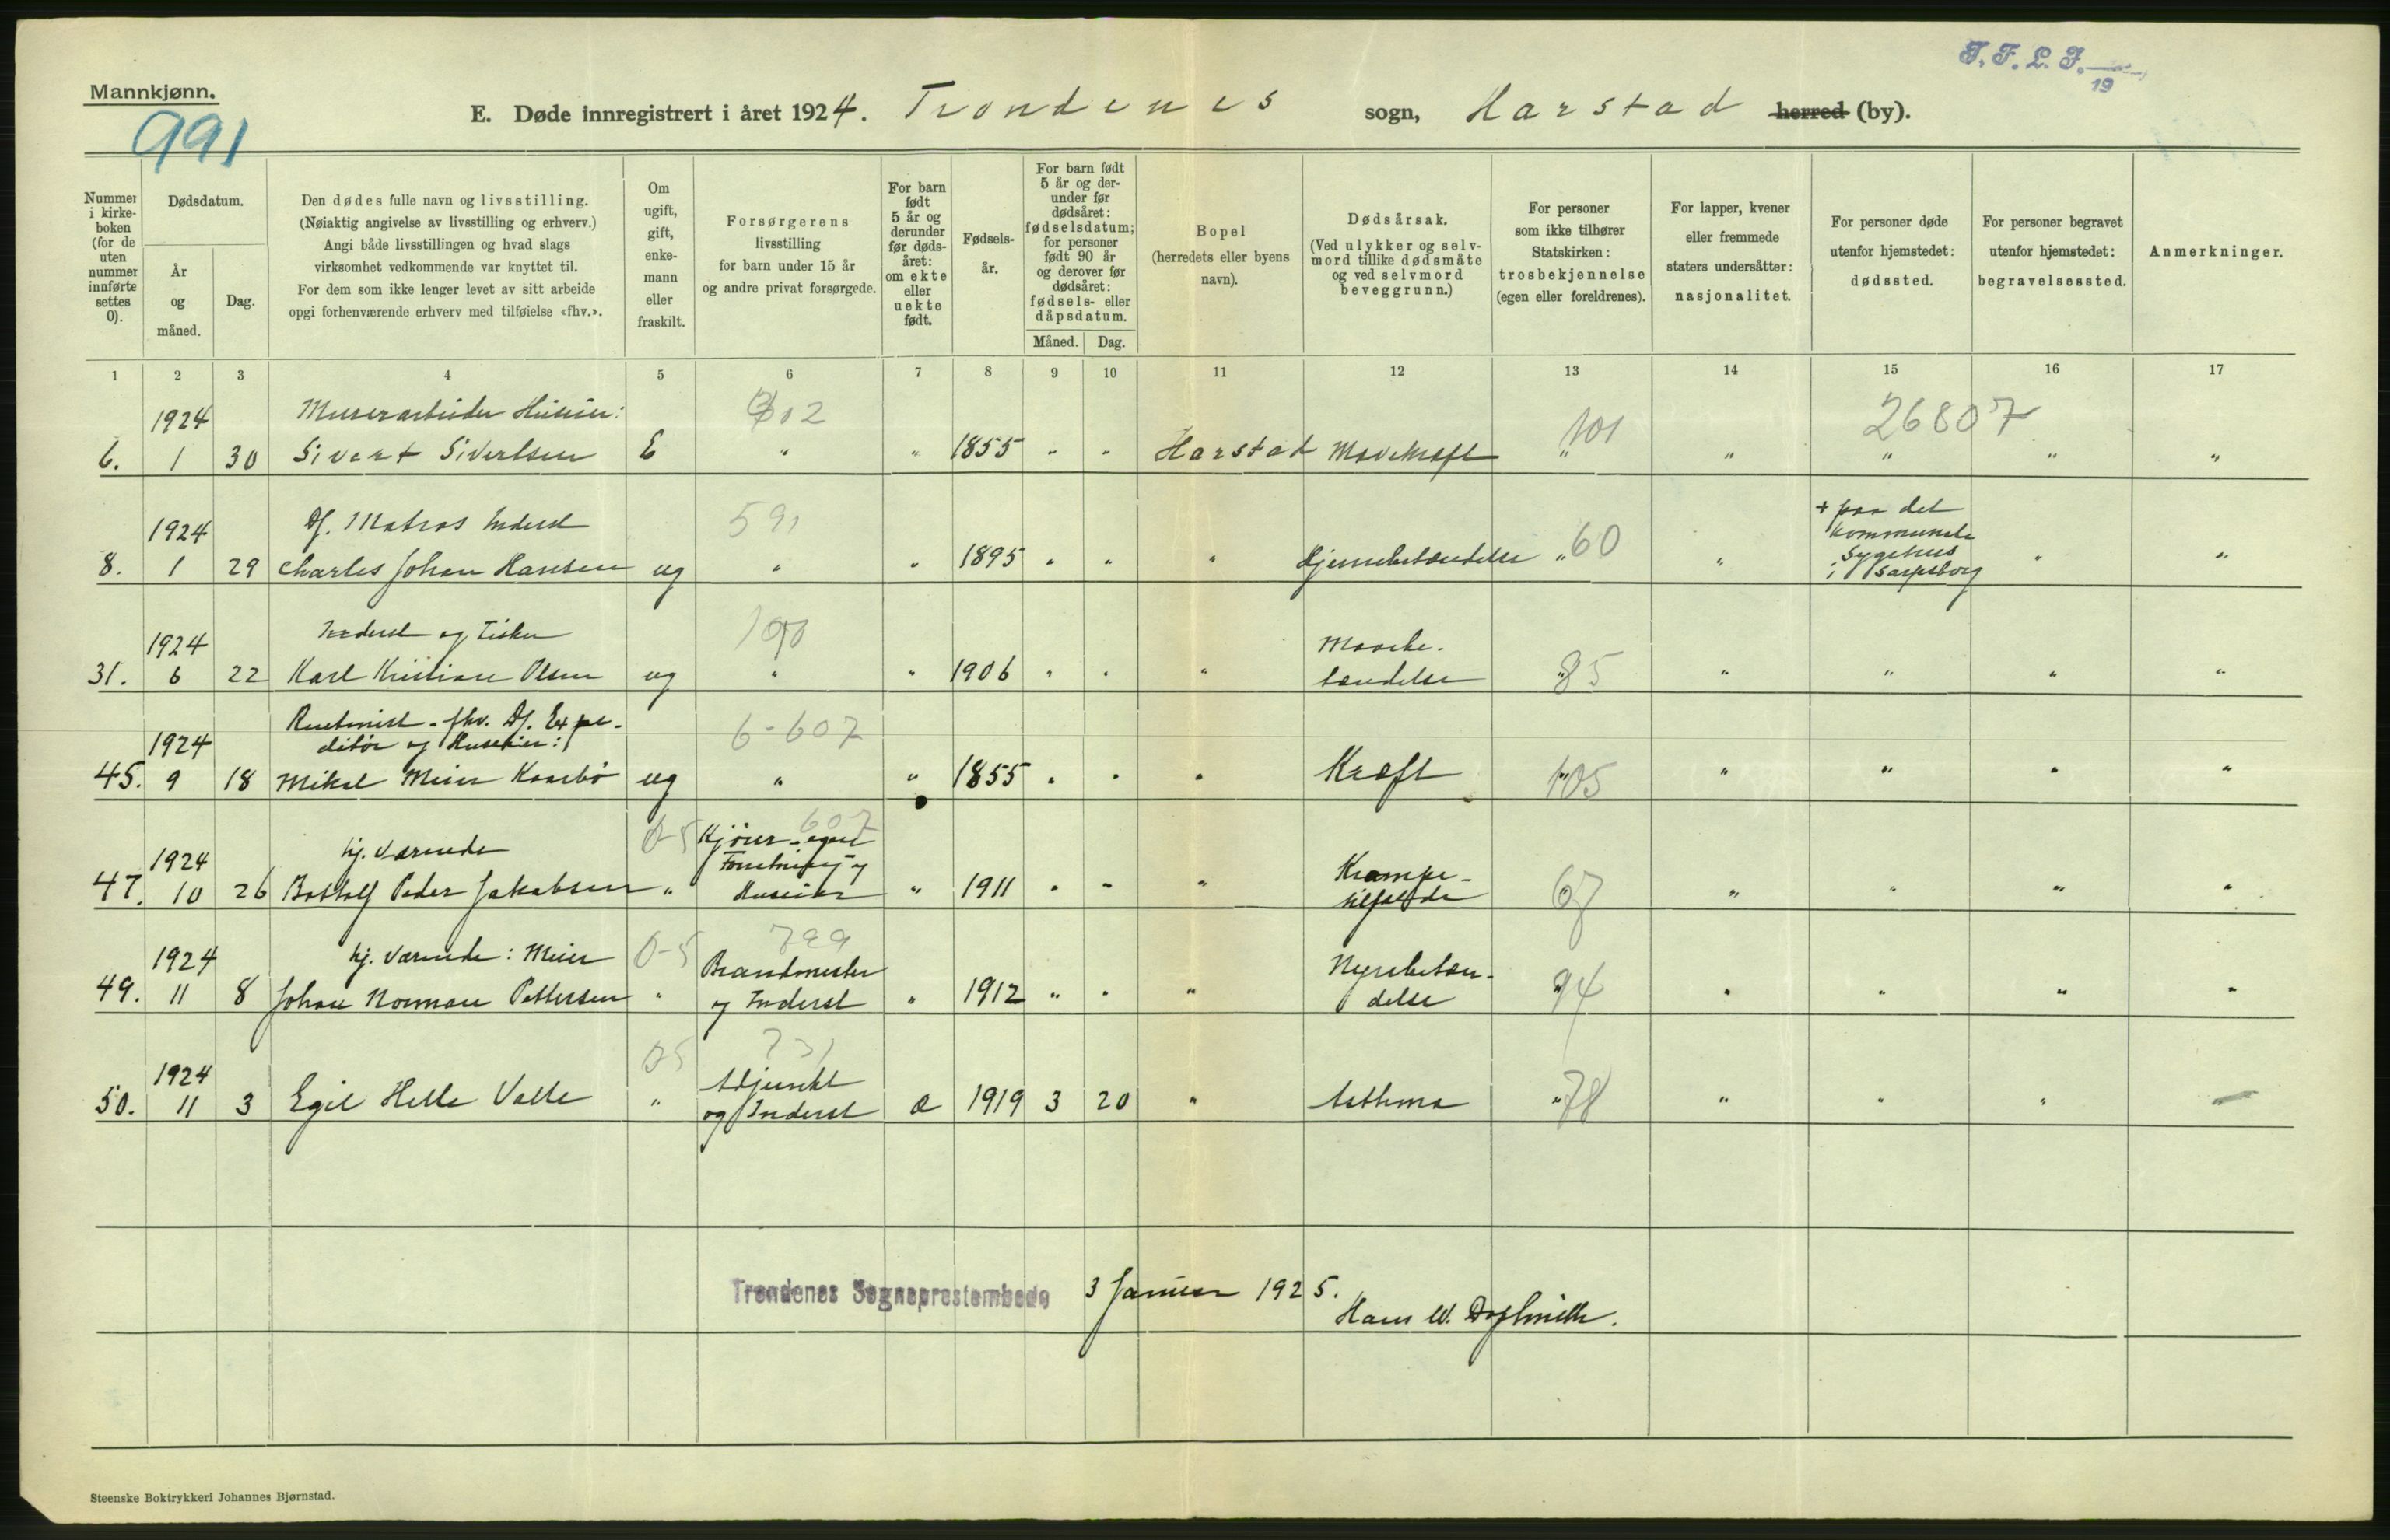 Mannkjønn.
991
E. Døde innregistrert i året 1924. Trondenes sogn, Harstad herred (by).
T. F. L. J.
19
Nummer i kirkeboken (for de uten nummer innførte settes 0).
Dødsdatum.
År og måned.
Dag.
Den dødes fulle navn og livsstilling.
(Nøiaktig angivelse av livsstilling og erhverv.)
Angi både livsstillingen og hvad slags
virksomhet vedkommende var knyttet til.
For dem som ikke lenger levet av sitt arbeide
opgi forhenværende erhverv med tilføielse «fhv.».
Om ugift, gift, enkemann eller fraskilt.
Forsørgerens
livsstilling
for barn under 15 år
og andre privat forsørgede.
For barn født 5 år og derunder før dødsåret: om ekte eller uekte født.
Fødselsår.
For barn født 5 år og derunder før dødsåret: fødselsdatum; for personer født 90 år og derover før dødsåret: fødsels- eller dåpsdatum.
Måned. Dag.
Bopel
(herredets eller byens navn).
Dødsårsak.
(Ved ulykker og selvmord tillike dødsmåte og ved selvmord beveggrunn.)
For personer som ikke tilhører Statskirken: trosbekjennelse (egen eller foreldrenes).
For lapper, kvener eller fremmede staters undersåtter: nasjonalitet.
For personer døde utenfor hjemstedet: dødssted.
For personer begravet utenfor hjemstedet: begravelsessted.
Anmerkninger.
1 2 3 4 5 6 7 8 9 10 11 12 13 14 15 16 17
1924 Murerarbeider Huseier: 302 101 26807
6. 1 30 Sivert Sivertsen E " " 1855 " " Harstad Mavekræft " " " " "
1924 Df. Matros Inderst 591 + paa det
kommunale
Sygehus
8. 1 29 Charles Johan Hansen ug " " 1895 " " " Hjernebetændelse " 60 " i Sarpsborg " "
1924 Inderst og Fisker 100 Mavebe-
31. 6 22 Karl Kristian Olsen ug " " 1906 " " " tændelse " 85 " " " "
Rentenist - fhv. Df. Expe-
1924 ditør og Huseier: 6-607
45. 9 18 Mikal Meier Kaarbø ug " " 1855 " " " Kræft " 105 " " " "
1924 hj. værende 0-5 Kjører-agent 607 Krampe-
Forretning og
47. 10 26 Botholf Peder Jakobsen " Huseier " 1911 " " " tilfælde 67 " " " "
1924 hj. værende: Meier 0-5 799 Brandmester Nyrebetæn-
49. 11 8 Johan Norman Pettersen " og Inderst " 1912 " " " delse " 94 " " " "
1924 05 731 Adjunkt
50. 11 3 Egil Helle Valle " og Inderst e 1919 3 20 " Asthma " 78 " " " —
Trondenes Sogneprestembede 3 Januar 1925.
Hans W.
Steenske Boktrykkeri Johannes Bjørnstad.